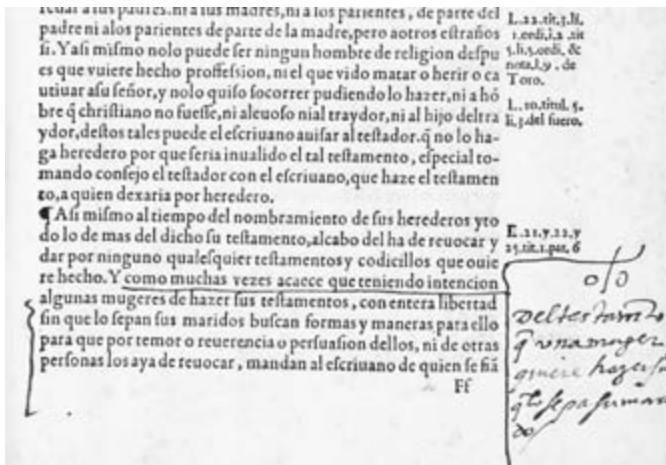 padre ni alos parientes de parte de la madre, pero aotros estraños
si. Y asi mismo nolo puede ser ningun hombre de religion despu
es que vuiere hecho proffession, ni el que vido matar o herir o ca
utiuar asu señor, y nolo quiso socorrer pudiendo lo hazer, ni a hõ
bre q̃ christiano no fuesse, ni aleuoso ni al traydor, ni al hijo del tra
ydor, destos tales puede el escriuano auisar al testador. q̃ no lo ha-
ga heredero por que seria inualido el tal testamento, especial to-
mando consejo el testador con el escriuano, que haze el testamen
to, a quien dexaria por heredero.
¶ Asi mismo al tiempo del nombramiento de sus herederos y to
do lo de mas del dicho su testamento, al cabo del ha de reuocar y
dar por ninguno qualesquier testamentos y codicillos que ouie
re hecho. Y como muchas vezes acaece que teniendo intencion
algunas mugeres de hazer sus testamentos, con entera libertad
sin que lo sepan sus maridos buscan formas y maneras para ello
para que por temor o reuerencia o persuasion dellos, ni de otras
personas los aya de reuocar, mandan al escriuano de quien se fiã
Ff
L. 22. tit. 5. li.
nota. l. 9. de
Toro.
L. 10. titul. 5.
li. 3. del fuero.
E. 21. y. 22. y
25. tit. 1. par. 6
del testamto
q̃ vna muger
quiere hazer
sepa su mari
do